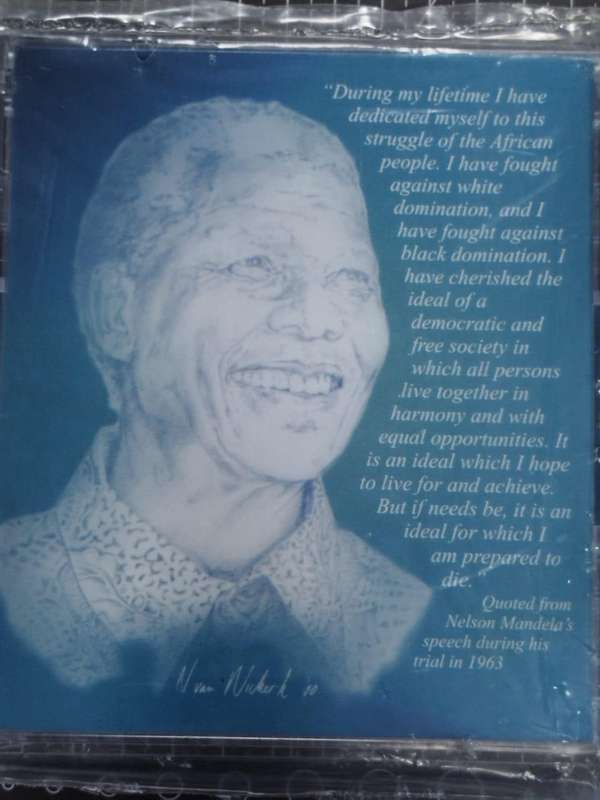 “During my lifetime I have
dedicated myself to this
struggle of the African
people. I have fought
against white
domination, and I
have fought against
black domination. I
have cherished the
ideal of a
democratic and
free society in
which all persons
live together in
harmony and with
equal opportunities. It
is an ideal which I hope
to live for and achieve.
But if needs be, it is an
ideal for which I
am prepared to
die.”
Quoted from
Nelson Mandela's
speech during his
trial in 1963
N van Niekerk 00